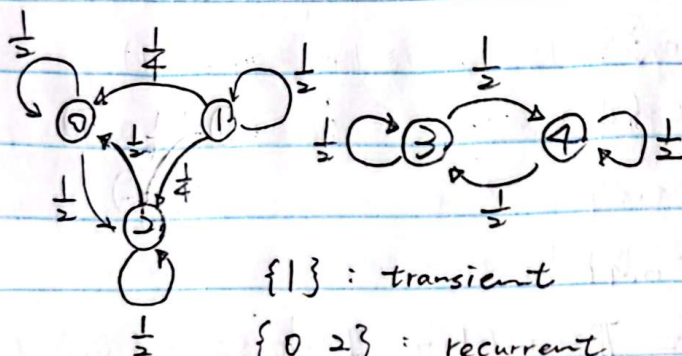 1/2
1/4
1/2
0
1
1/2
1/2
1/4
2
1/2
1/2
1/2
3
4
1/2
1/2
{1} : transient
{0 2} : recurrent